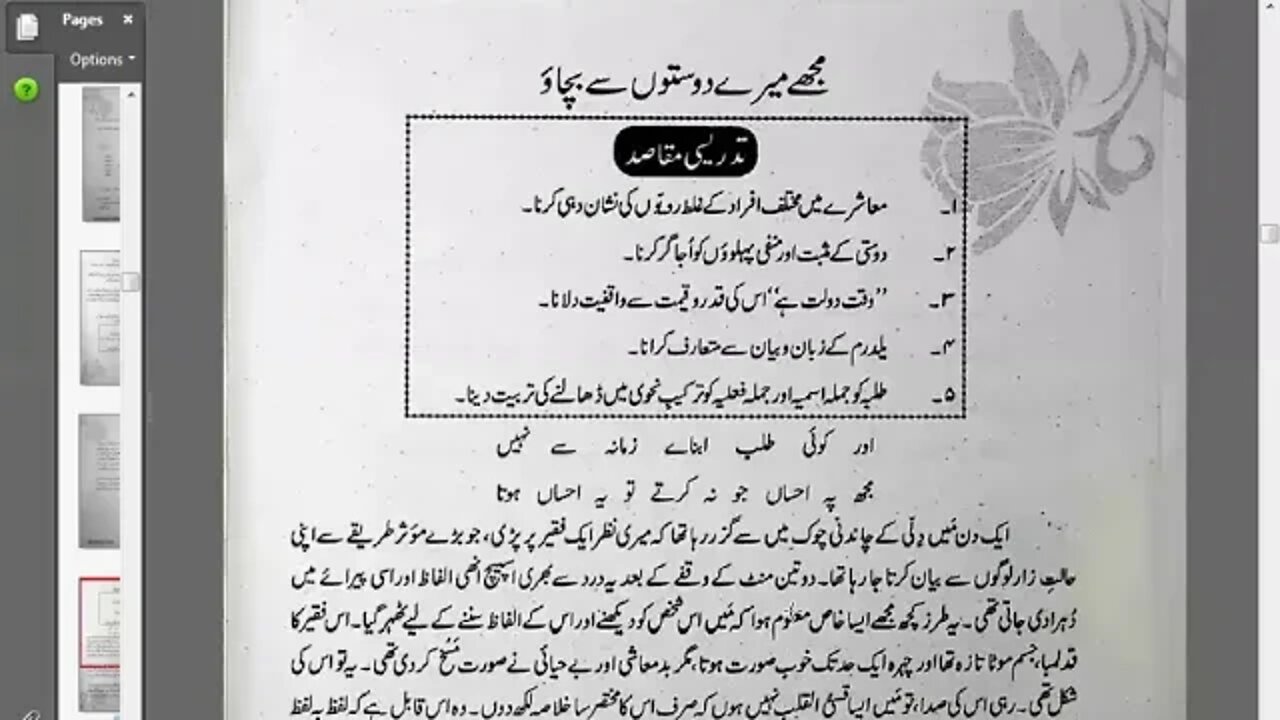 Pages ×
Options
?
مجھے میرے دوستوں سے بچاؤ
تدریسی مقاصد
۱۔ معاشرے میں مختلف افراد کے غلط رویّوں کی نشان دہی کرنا۔
۲۔ دوستی کے مثبت اور منفی پہلوؤں کو اُجاگر کرنا۔
۳۔ ’’وقت دولت ہے‘‘ اس کی قدر و قیمت سے واقفیت دلانا۔
۴۔ یلدرم کے زبان و بیان سے متعارف کرانا۔
۵۔ طلبہ کو جملہ اسمیہ اور جملہ فعلیہ کو ترکیبِ نحوی میں ڈھالنے کی تربیت دینا۔
اور کوئی طلب ابنائے زمانہ سے نہیں
مجھ پہ احساں جو نہ کرتے تو یہ احساں ہوتا
ایک دن مَیں دِلّی کے چاندنی چوک میں سے گزر رہا تھا کہ میری نظر ایک فقیر پر پڑی، جو بڑے مؤثر طریقے سے اپنی
حالتِ زار لوگوں سے بیان کرتا جا رہا تھا۔ دو تین منٹ کے وقفے کے بعد یہ درد سے بھری اسپیچ انھی الفاظ اور اسی پیرائے میں
دُہرا دی جاتی تھی۔ یہ طرز کچھ مجھے ایسا خاص معلوم ہوا کہ مَیں اس شخص کو دیکھنے اور اس کے الفاظ سننے کے لیے ٹھہر گیا۔ اس فقیر کا
قد لمبا، جسم موٹا تازہ تھا اور چہرہ ایک حد تک خوب صورت ہوتا، مگر بدمعاشی اور بے حیائی نے صورت مَسْخ کر دی تھی۔ یہ تو اس کی
شکل تھی۔ رہی اس کی صدا، تو مَیں ایسا قسیُّ القلب نہیں ہوں کہ صرف اس کا مختصر سا خلاصہ لکھ دوں۔ وہ اس قابل ہے کہ لفظ بہ لفظ